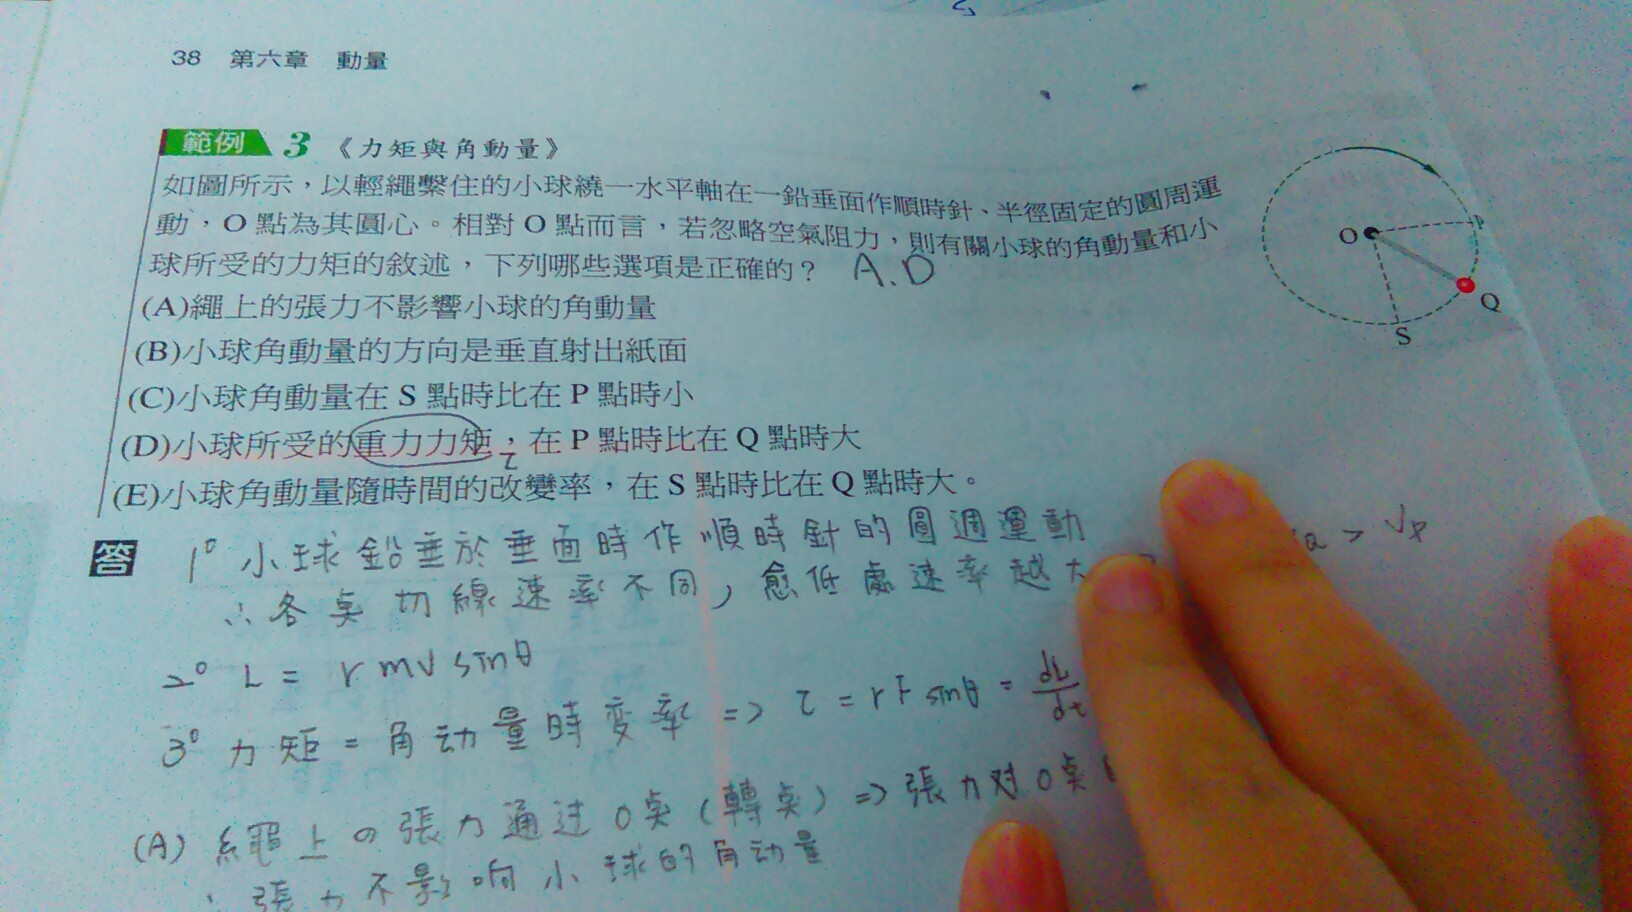 38 第六章 動量
範例 3 《力矩與角動量》
如圖所示，以輕繩繫住的小球繞一水平軸在一鉛垂面作順時針、半徑固定的圓周運
動，O 點為其圓心。相對 O 點而言，若忽略空氣阻力，則有關小球的角動量和小
球所受的力矩的敘述，下列哪些選項是正確的？ A.D
(A)繩上的張力不影響小球的角動量
(B)小球角動量的方向是垂直射出紙面
(C)小球角動量在 S 點時比在 P 點時小
(D)小球所受的重力力矩，在 P 點時比在 Q 點時大
τ
(E)小球角動量隨時間的改變率，在 S 點時比在 Q 點時大。
O
P
Q
S
答 1° 小球鉛垂於垂面時作順時針的圓週運動
∴各奌切線速率不同，愈低處速率越大
> Vp
2° L = rmv sinθ
3° 力矩 = 角动量時变率 => τ = rF sinθ = dL/dt
(A) 繩上の張力通过O奌(轉奌) => 張力对O奌
張力不影响小球的角动量